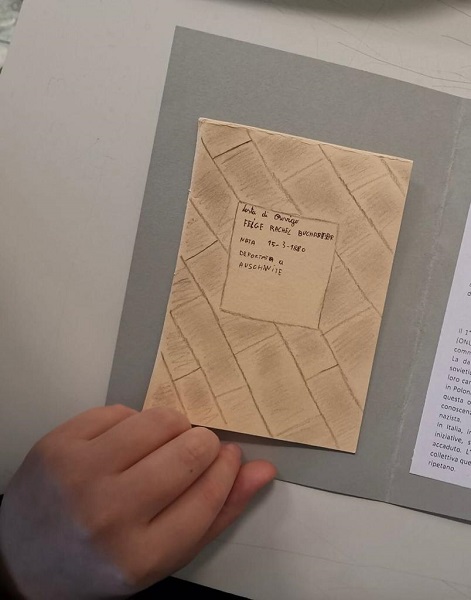 di
FEIGE RACHEL
NATA 15-3-1880
DEPORTATA a
AUSCHWITZ
Il 1°
(ONU
comm
La da
sovieti
loro car
in Polon
questo o
conoscen
nazista.
In Italia, in
iniziative, s
accaduto. L'
collettiva que
ripetano.